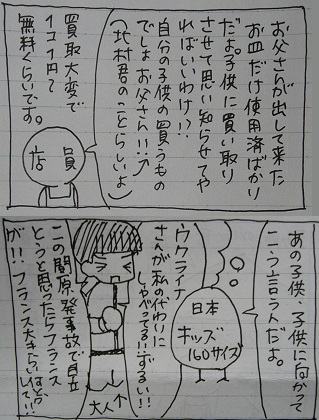 お父さんが出して来た
お皿だけ使用済ばかり
だよ。子供に買い取り
させて思い知らせてや
ればいいわけ!?
自分の子供の買うもの
でしょお父さん!!
(北村君のことらしいよ)
買取大変で
1コ1円?
無料くらいです。
店員
あの子供・子供に向かって
こう言うんだよ。
日本
キッズ
160サイズ
ウクライナ
さんが私の代わりに
しゃべってる!!ずるい!!
大人
この関原発事故で自立
とうと思ったらフランス
が!!フランス大きらい!!